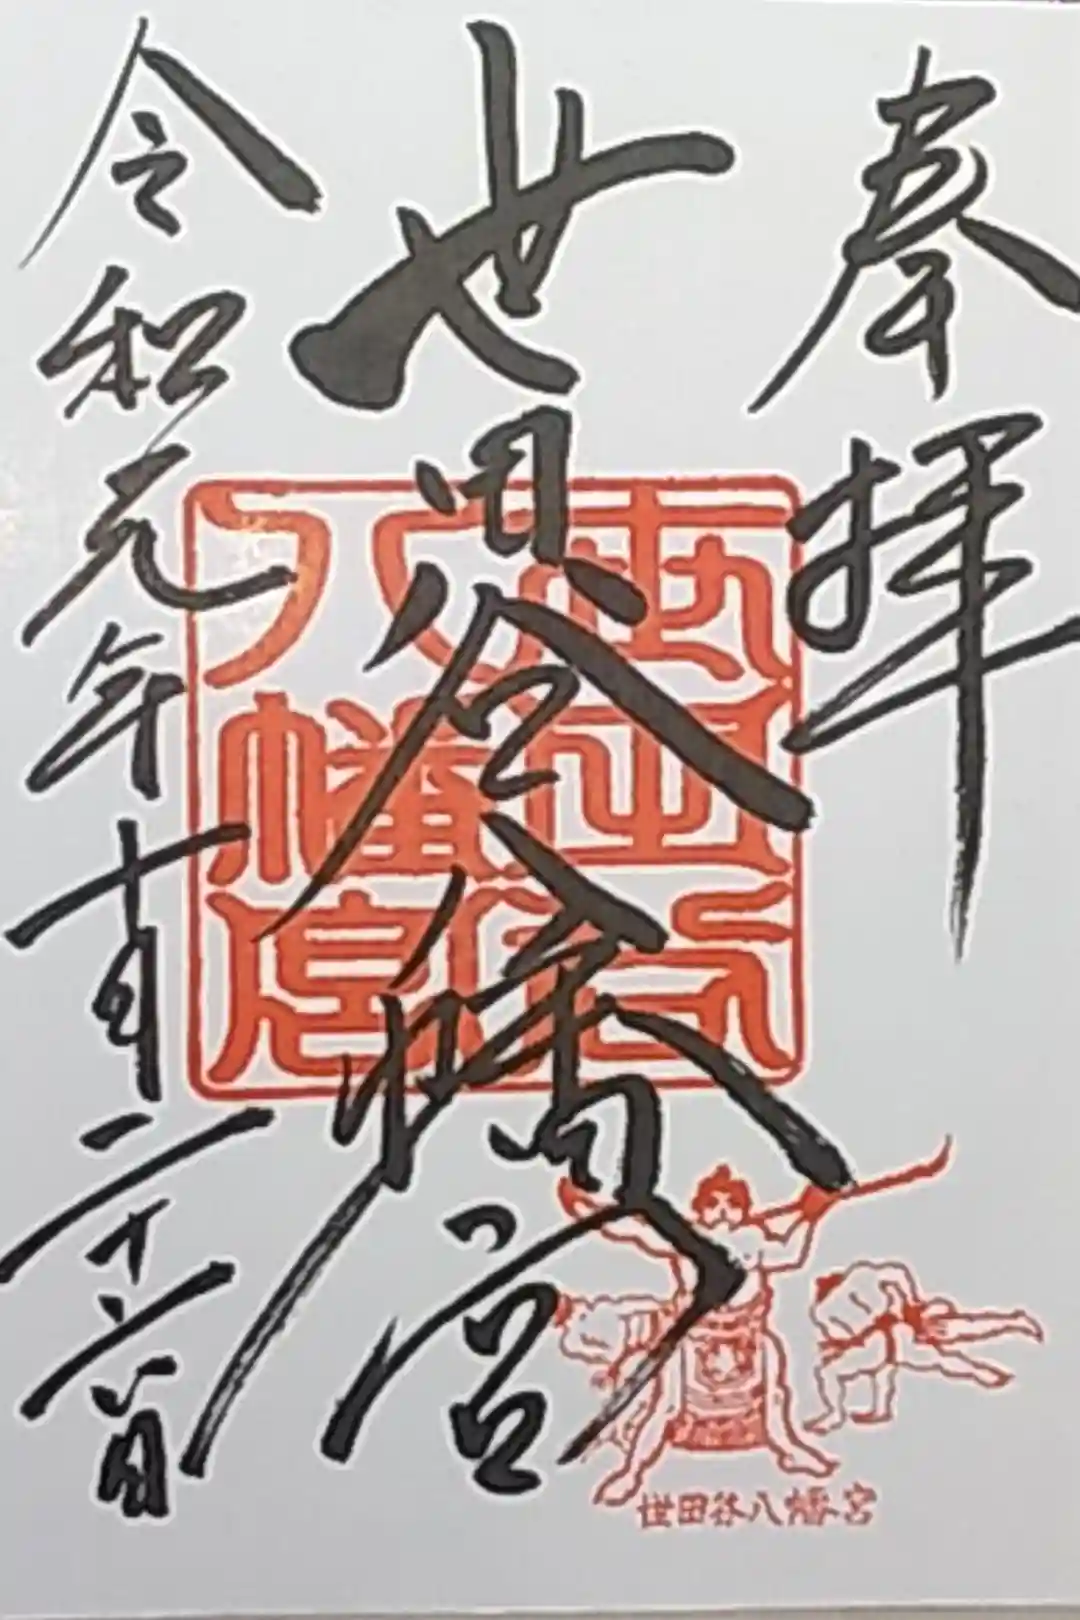 奉拝
世田谷八幡宮
令和元年十月二十六日
八幡宮
世田谷八幡宮